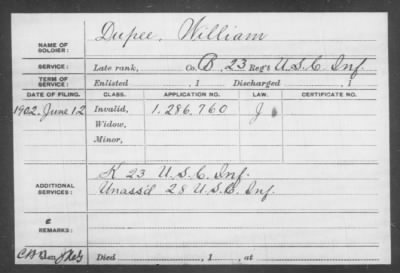 NAME OF SOLDIER: Dupee, William
SERVICE: Late rank, Co. B, 23 Reg't U.S.C. Inf.
TERM OF SERVICE: Enlisted , 1 Discharged , 1
DATE OF FILING. CLASS. APPLICATION NO. LAW. CERTIFICATE NO.
1902, June 12 Invalid, 1.286.760 J
Widow,
Minor,
ADDITIONAL SERVICES: K 23 U.S.C. Inf.
Unass'd 28 U.S.C. Inf.
REMARKS:
Died , 1 , at